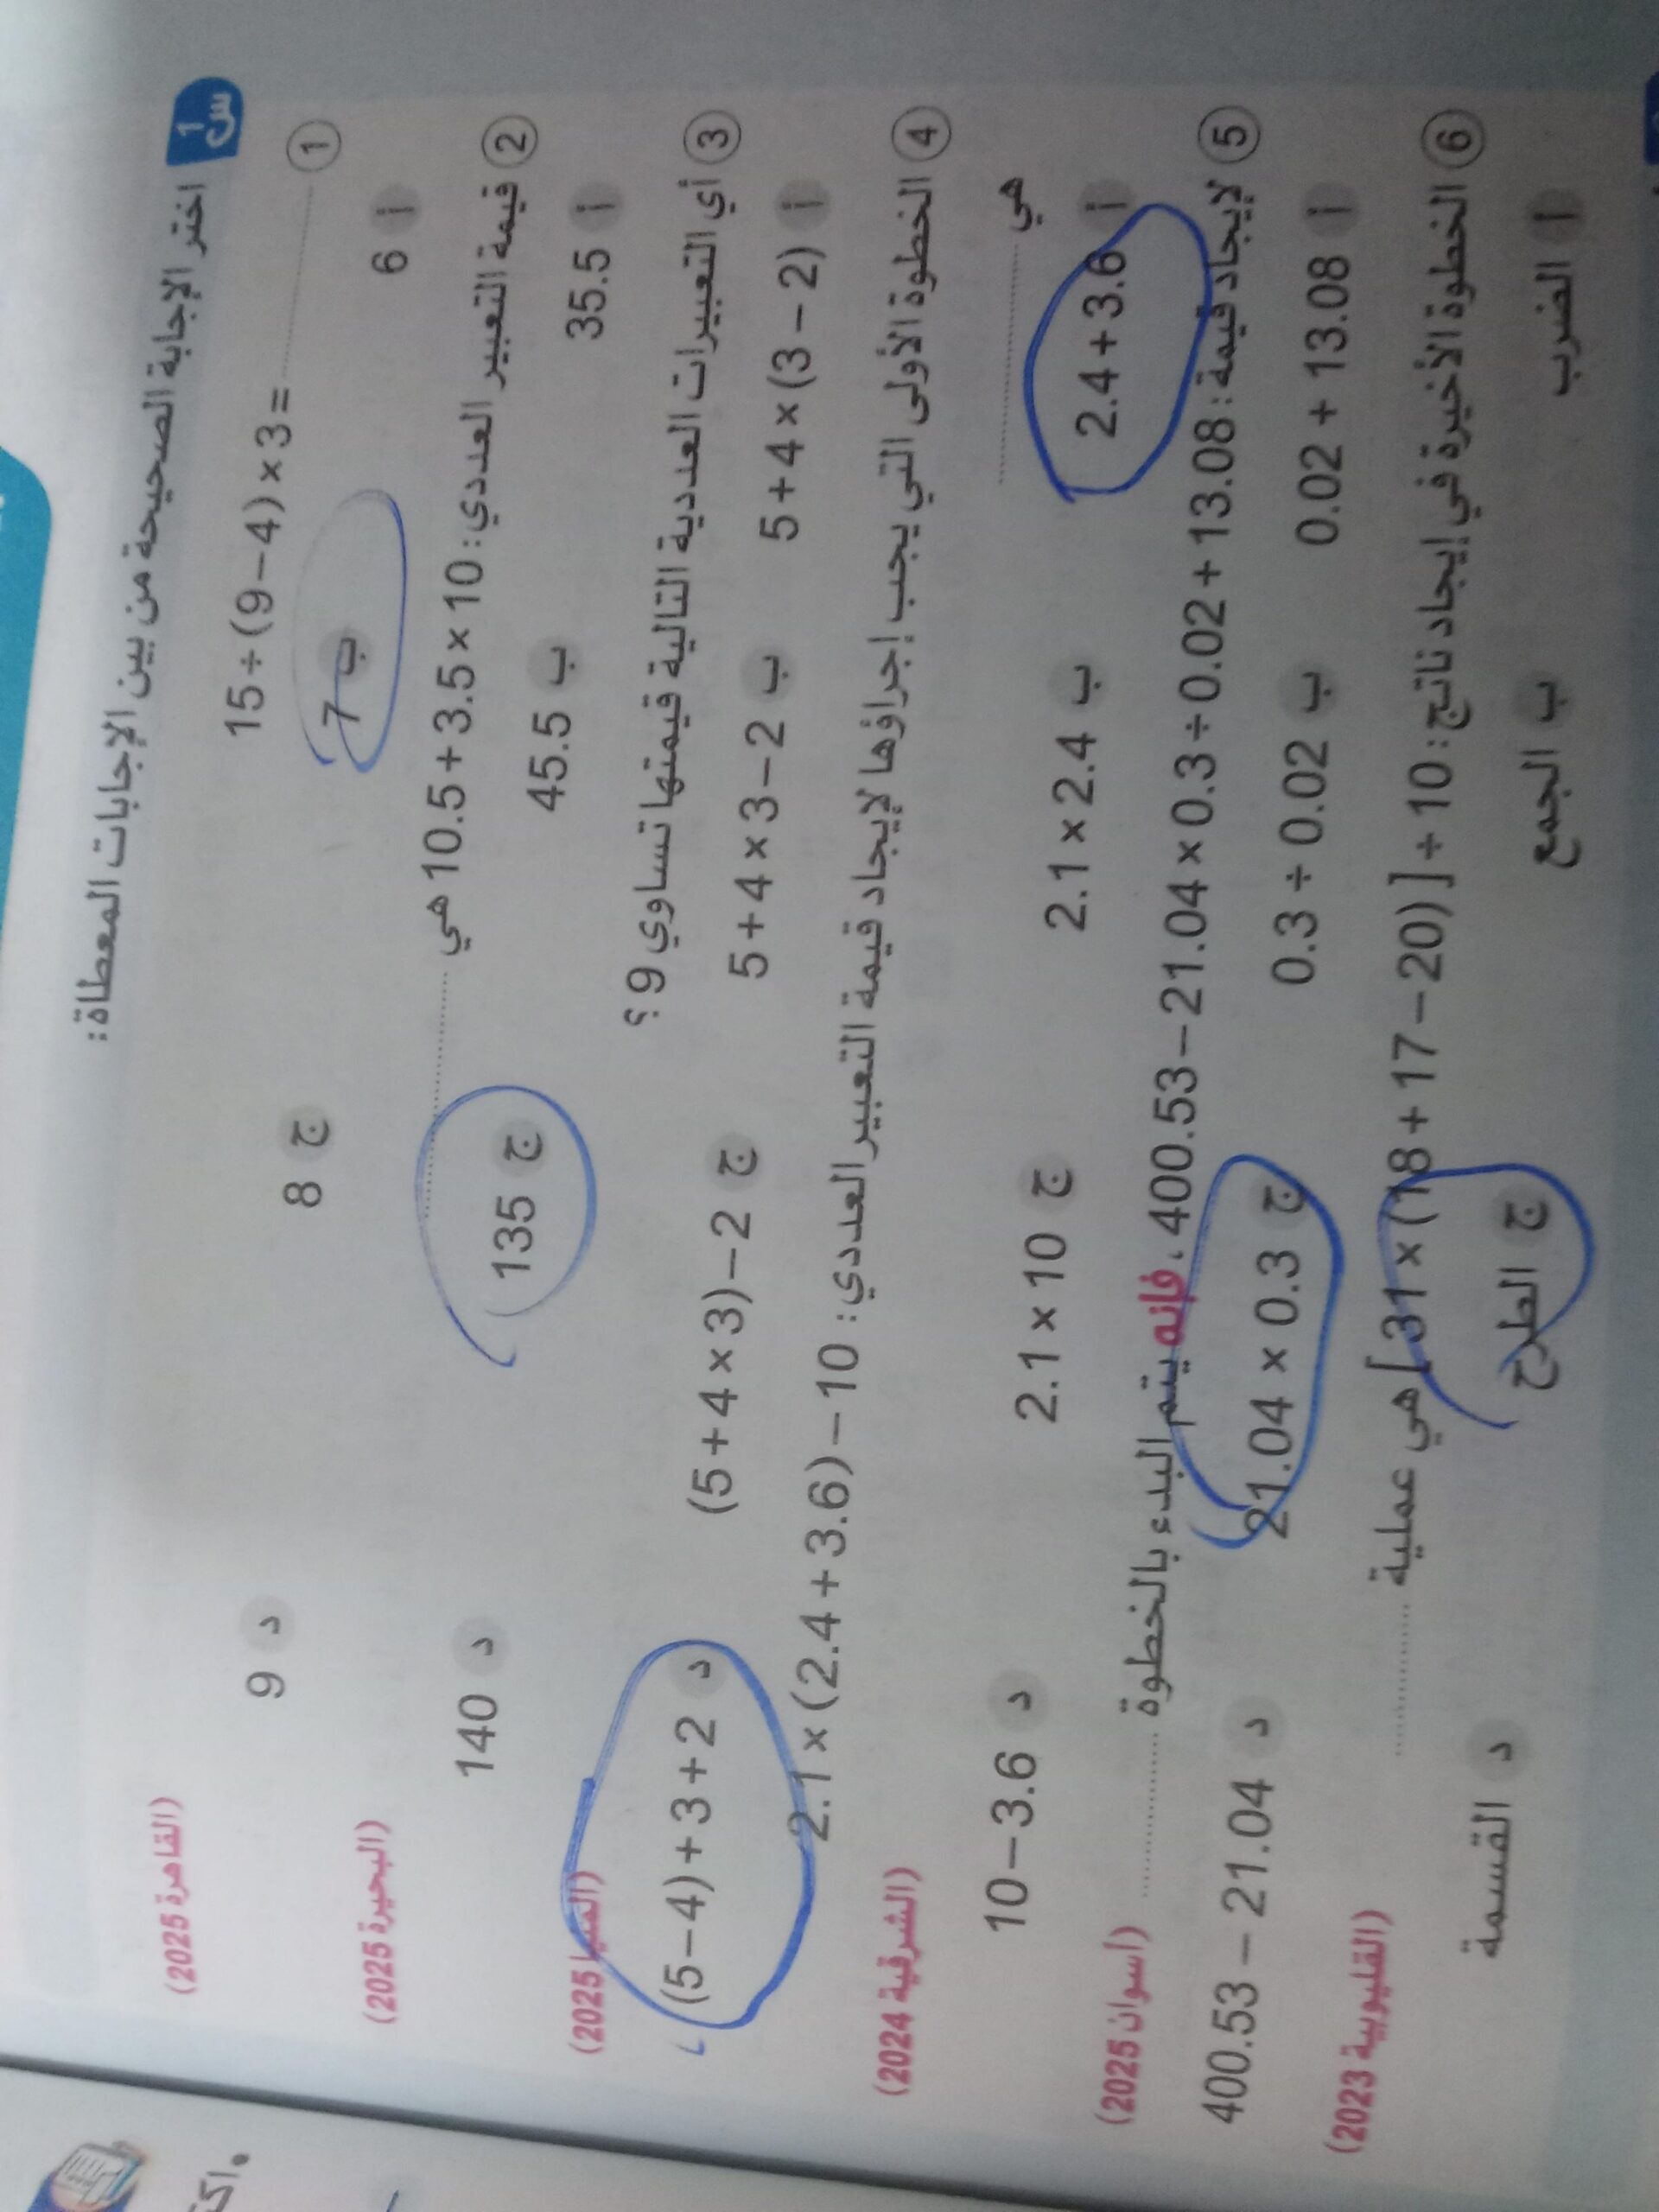 س1 اختر الإجابة الصحيحة من بين الإجابات المعطاة:
1 15 ÷ (9 – 4) × 3 = .......... (القاهرة 2025)
أ 6 ب 7 ج 8 د 9
2 قيمة التعبير العددي: 10.5 + 3.5 × 10 هي .......... (البحيرة 2025)
أ 35.5 ب 45.5 ج 135 د 140
3 أي التعبيرات العددية التالية قيمتها تساوي 9 ؟ (المنيا 2025)
أ 5 + 4 × (3 – 2) ب 5 + 4 × 3 – 2 ج (5 + 4 × 3) – 2 د (5 – 4) + 3 + 2
4 الخطوة الأولى التي يجب إجراؤها لإيجاد قيمة التعبير العددي: 2.1 × (2.4 + 3.6) – 10
هي .......... (الشرقية 2024)
أ 2.4 + 3.6 ب 2.1 × 2.4 ج 2.1 × 10 د 10 – 3.6
5 لإيجاد قيمة: 400.53 – 21.04 × 0.3 ÷ 0.02 + 13.08 ، فإنه يتم البدء بالخطوة .......... (أسوان 2025)
أ 0.02 + 13.08 ب 0.3 ÷ 0.02 ج 21.04 × 0.3 د 400.53 – 21.04
6 الخطوة الأخيرة في إيجاد ناتج: [31 × (18 + 17 – 20)] ÷ 10 هي عملية .......... (القليوبية 2023)
أ الضرب ب الجمع ج الطرح د القسمة